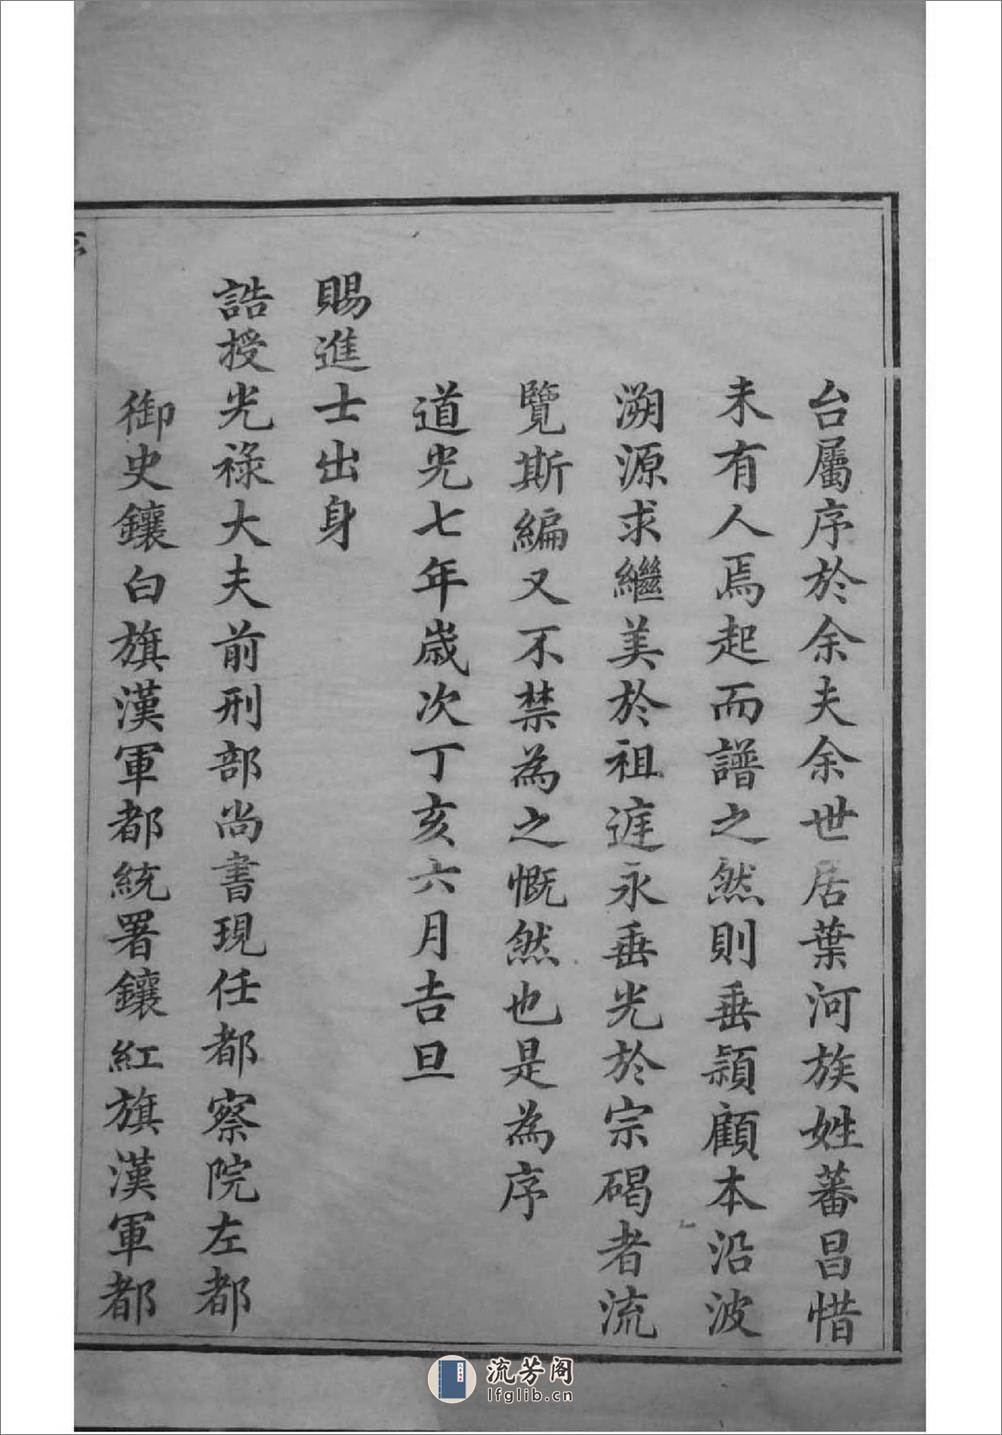 台屬序於余夫余世居葉河族姓蕃昌惜
未有人焉起而譜之然則垂穎顧本沿波
溯源求繼美於祖庭永垂光於宗碣者流
覽斯編又不禁為之慨然也是為序
道光七年歲次丁亥六月吉旦
賜進士出身
誥授光祿大夫前刑部尚書現任都察院左都
御史鑲白旗漢軍都統署鑲紅旗漢軍都
流芳阁
lfglib.cn